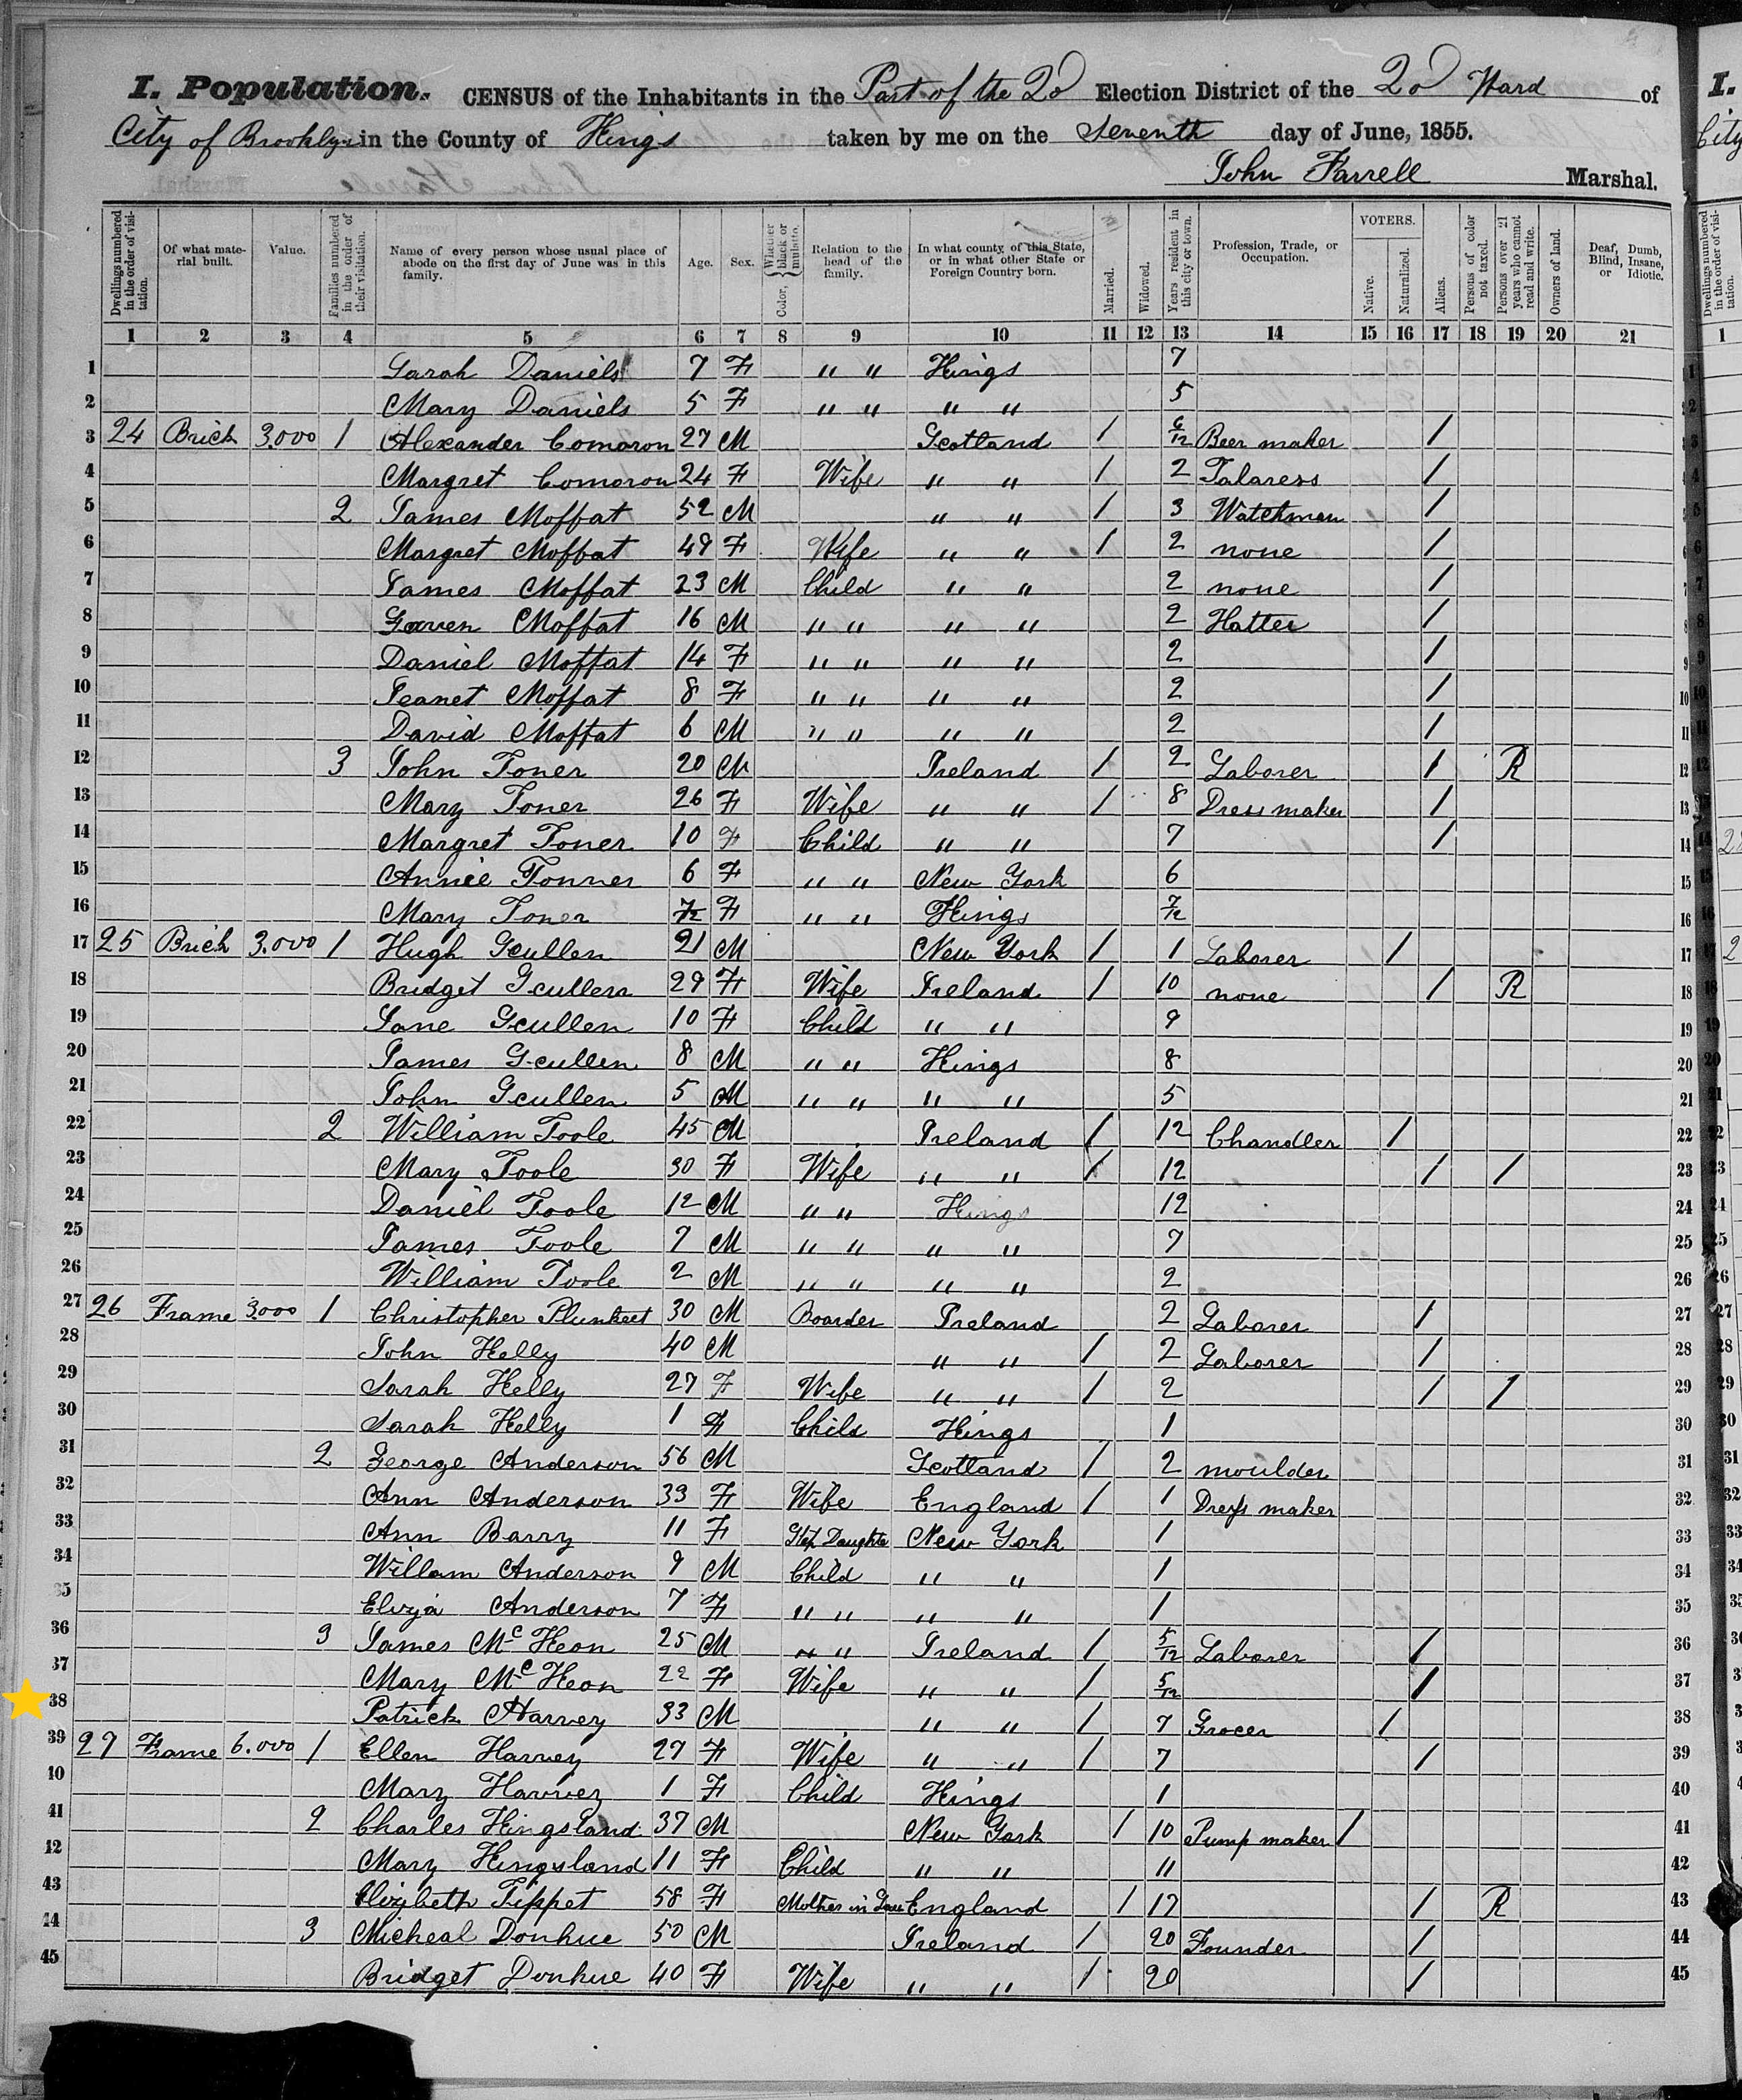 I. Population. CENSUS of the Inhabitants in the Part of the 2d Election District of the 2d Ward of
City of Brooklyn in the County of Kings taken by me on the Seventh day of June, 1855.
John Farrell Marshal.
Dwellings numbered in the order of visitation. Of what material built. Value. Families numbered in the order of their visitation. Name of every person whose usual place of abode on the first day of June was in this family. Age. Sex. Color, Whether black or mulatto. Relation to the head of the family. In what county of this State, or in what other State or Foreign Country born. Married. Widowed. Years resident in this city or town. Profession, Trade, or Occupation. VOTERS. Native. Naturalized. Aliens. Persons of color not taxed. Persons over 21 years who cannot read and write. Owners of land. Deaf, Dumb, Blind, Insane, or Idiotic.
1 2 3 4 5 6 7 8 9 10 11 12 13 14 15 16 17 18 19 20 21
1 Sarah Daniels 7 F " " Kings 7 1
2 Mary Daniels 5 F " " " " 5 2
3 24 Brick 3.000 1 Alexander Comoron 27 M Scotland / 6/12 Beer maker / 3
4 Margret Comoron 24 F Wife " " / 2 Talaress / 4
5 2 James Moffat 52 M " " / 3 Watchman / 5
6 Margret Moffat 49 F Wife " " / 2 none / 6
7 James Moffat 23 M Child " " 2 none / 7
8 Gaven Moffat 16 M " " " " 2 Hatter / 8
9 Daniel Moffat 14 F " " " " 2 / 9
10 Jeanet Moffat 8 F " " " " 2 / 10
11 David Moffat 6 M " " " " 2 / 11
12 3 John Toner 20 M Ireland / 2 Laborer / R 12
13 Mary Toner 26 F Wife " " / 8 Dress maker / 13
14 Margret Toner 10 F Child " " 7 / 14
15 Annie Tonner 6 F " " New York 6 15
16 Mary Toner 7/12 F " " Kings 7/12 16
17 25 Brick 3.000 1 Hugh Gcullen 21 M New York / 1 Laborer / 17
18 Bridget Gcullen 29 F Wife Ireland / 10 none / R 18
19 Jane Gcullen 10 F Child " " 9 19
20 James Gcullen 8 M " " Kings 8 20
21 John Gcullen 5 M " " " " 5 21
22 2 William Toole 45 M Ireland / 12 Chandler / 22
23 Mary Toole 30 F Wife " " / 12 / / 23
24 Daniel Toole 12 M " " Kings 12 24
25 James Toole 7 M " " " " 7 25
26 William Toole 2 M " " " " 2 26
27 26 Frame 3.000 1 Christopher Plunkeet 30 M Boarder Ireland 2 Laborer / 27
28 John Kelly 40 M " " / 2 Laborer / 28
29 Sarah Kelly 27 F Wife " " / 2 / / 29
30 Sarah Kelly 1 F Child Kings 1 30
31 2 George Anderson 56 M Scotland / 2 moulder 31
32 Ann Anderson 39 F Wife England / 1 Dress maker 32
33 Ann Barry 11 F Step Daughter New York 1 33
34 Willam Anderson 9 M Child " " 1 34
35 Eliza Anderson 7 F " " " " 1 35
36 3 James Mc Keon 25 M " " Ireland / 5/12 Laborer / 36
37 Mary Mc Keon 22 F Wife " " / 5/12 / 37
38 Patrick Harvey 33 M " " / 7 Grocer / 38
39 27 Frame 6.000 1 Ellen Harvey 27 F Wife " " / 7 / 39
40 Mary Harvey 1 F Child Kings 1 40
41 2 Charles Kingsland 37 M New York / 10 Pump maker / 41
42 Mary Kingsland 11 F Child " " 11 42
43 Elizibeth Tippet 58 F Mother in Law England / 17 / R 43
44 3 Micheal Donhue 50 M Ireland / 20 Founder / 44
45 Bridget Donhue 40 F Wife " " / 20 / 45